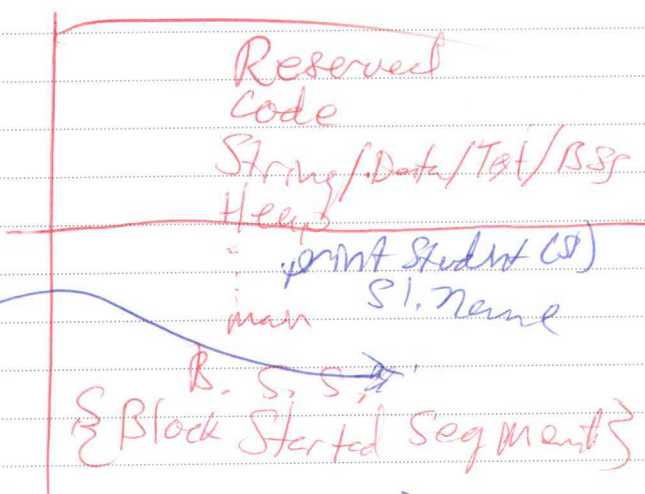 Reserved
Code
String/.Data/Text/BSS
Heap
print Student (S1)
S1.name
main
B. S. S.
{Block Started Segment}